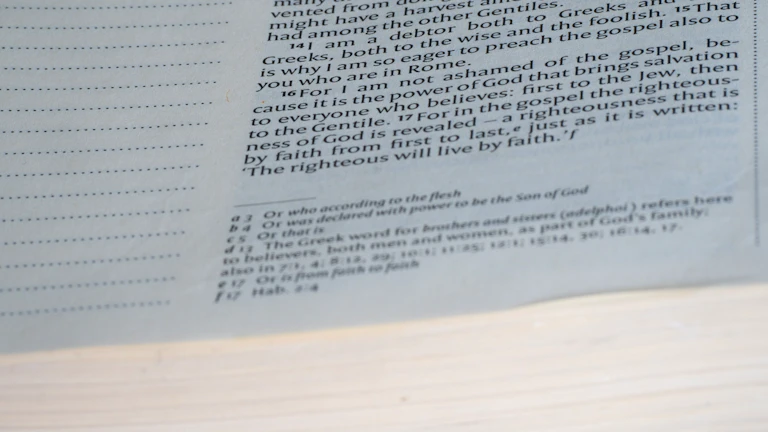 vented from
might have a harvest
had among the other Gentiles.
14 I am a debtor both to Greeks and
Greeks, both to the wise and the foolish. 15 That
is why I am so eager to preach the gospel also to
you who are in Rome.
16 For I am not ashamed of the gospel, be-
cause it is the power of God that brings salvation
to everyone who believes: first to the Jew, then
to the Gentile. 17 For in the gospel the righteous-
ness of God is revealed – a righteousness that is
by faith from first to last,e just as it is written:
‘The righteous will live by faith.’f
a 3 Or who according to the flesh
b 4 Or was declared with power to be the Son of God
c 5 Or that is
d 13 The Greek word for brothers and sisters (adelphoi) refers here
to believers, both men and women, as part of God's family;
also in 7:1, 4; 8:12, 29; 10:1; 11:25; 12:1; 15:14, 30; 16:14, 17.
e 17 Or is from faith to faith
f 17 Hab. 2:4